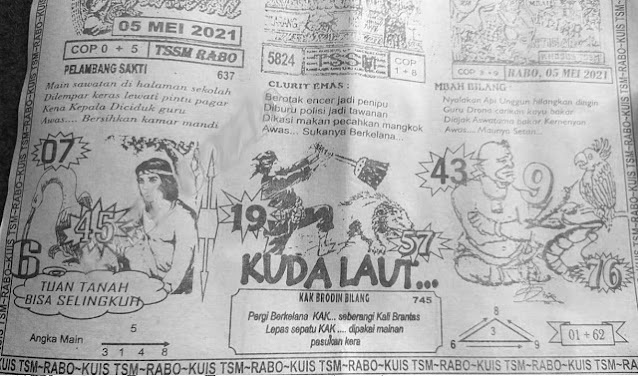 05 MEI 2021
COP 0 + 5
TSSM RABO
PELAMBANG SAKTI
637
Main sawatan di halaman sekolah
Dilempar keras lewati pintu pagar
Kena Kepala Diciduk guru
Awas.... Bersihkan kamar mandi
07
45
6
TUAN TANAH
BISA SELINGKUH
Angka Main
5
3 1 4 8
5824
COP
1 + 8
CLURIT EMAS :
Berotak encer jadi penipu
Diburu polisi jadi tawanan
Dikasi makan pecahkan mangkok
Awas... Sukanya Berkelana...
19
57
KUDA LAUT...
KAK BRODIN BILANG
745
Pergi Berkelana KAK... seberangi Kali Brantas
Lepas sepatu KAK .... dipakai mainan
pasukan kera
RABO, 05 MEI 2021
MBAH BILANG :
Nyalakan Api Unggun hilangkan dingin
Guru Drona carikan kayu bakar
43
9
76
8
6 3 9
01 + 62
KUIS TSM~RABO~KUIS TSM~RABO~KUIS TSM~RABO~KUIS TSM~RABO~KUIS TSM~RABO~KUIS TSM~RABO~KUIS TSM